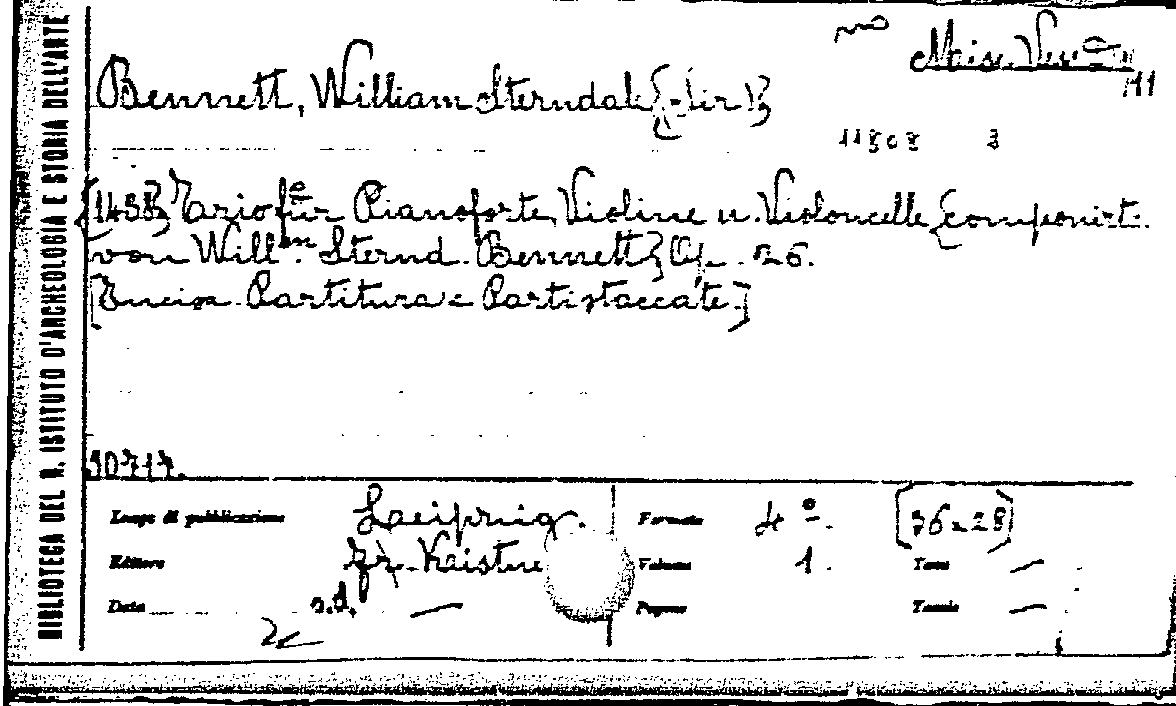 BIBLIOTECA DEL R. ISTITUTO D'ARCHEOLOGIA E STORIA DELL'ARTE
Mus. Ven
Bennett, William Sterndale [-Sir]
11808 3
für Pianoforte, Violine u. Violoncelle [componirt.
von Will^m. Sternd. Bennett] Op. 26.
[Incisa Partitura e Parti staccate]
30717.
Luogo di pubblicazione Leipzig. Formato 4º. [36x28]
Editore Fr. Kistne Volume 1. Tavv. —
Data s.d. — Pagine Tavole —